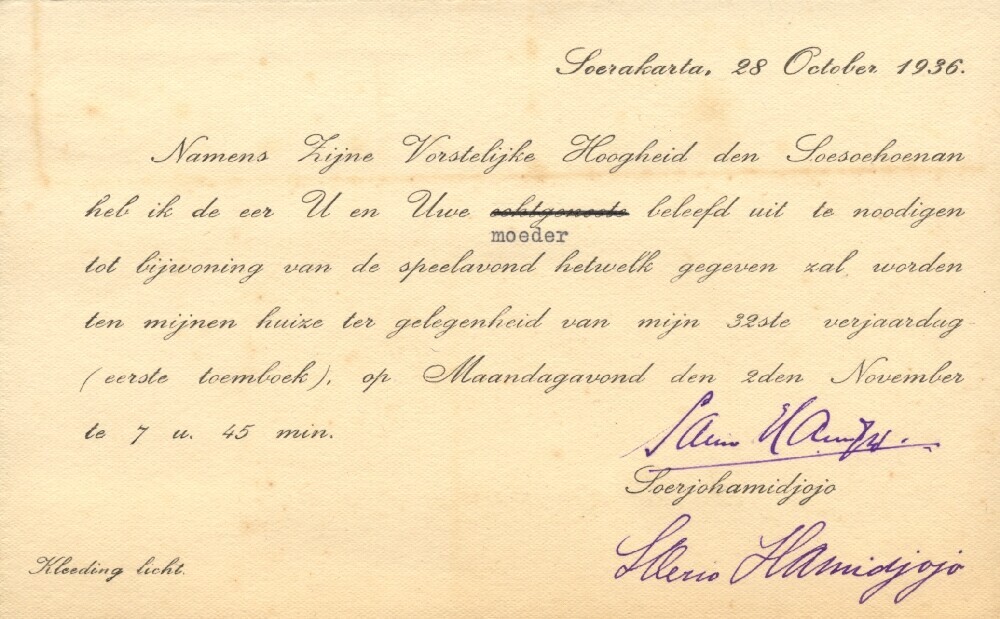 Soerakarta, 28 October 1936.
Namens Zijne Vorstelijke Hoogheid den Soesoehoenan
heb ik de eer U en Uwe echtgenoote beleefd uit te noodigen
moeder
tot bijwoning van de speelavond hetwelk gegeven zal worden
ten mijnen huize ter gelegenheid van mijn 32ste verjaardag
(eerste toemboek), op Maandagavond den 2den November
te 7 u. 45 min.
Soerjohamidjojo
Kleeding licht.
Hamidjojo